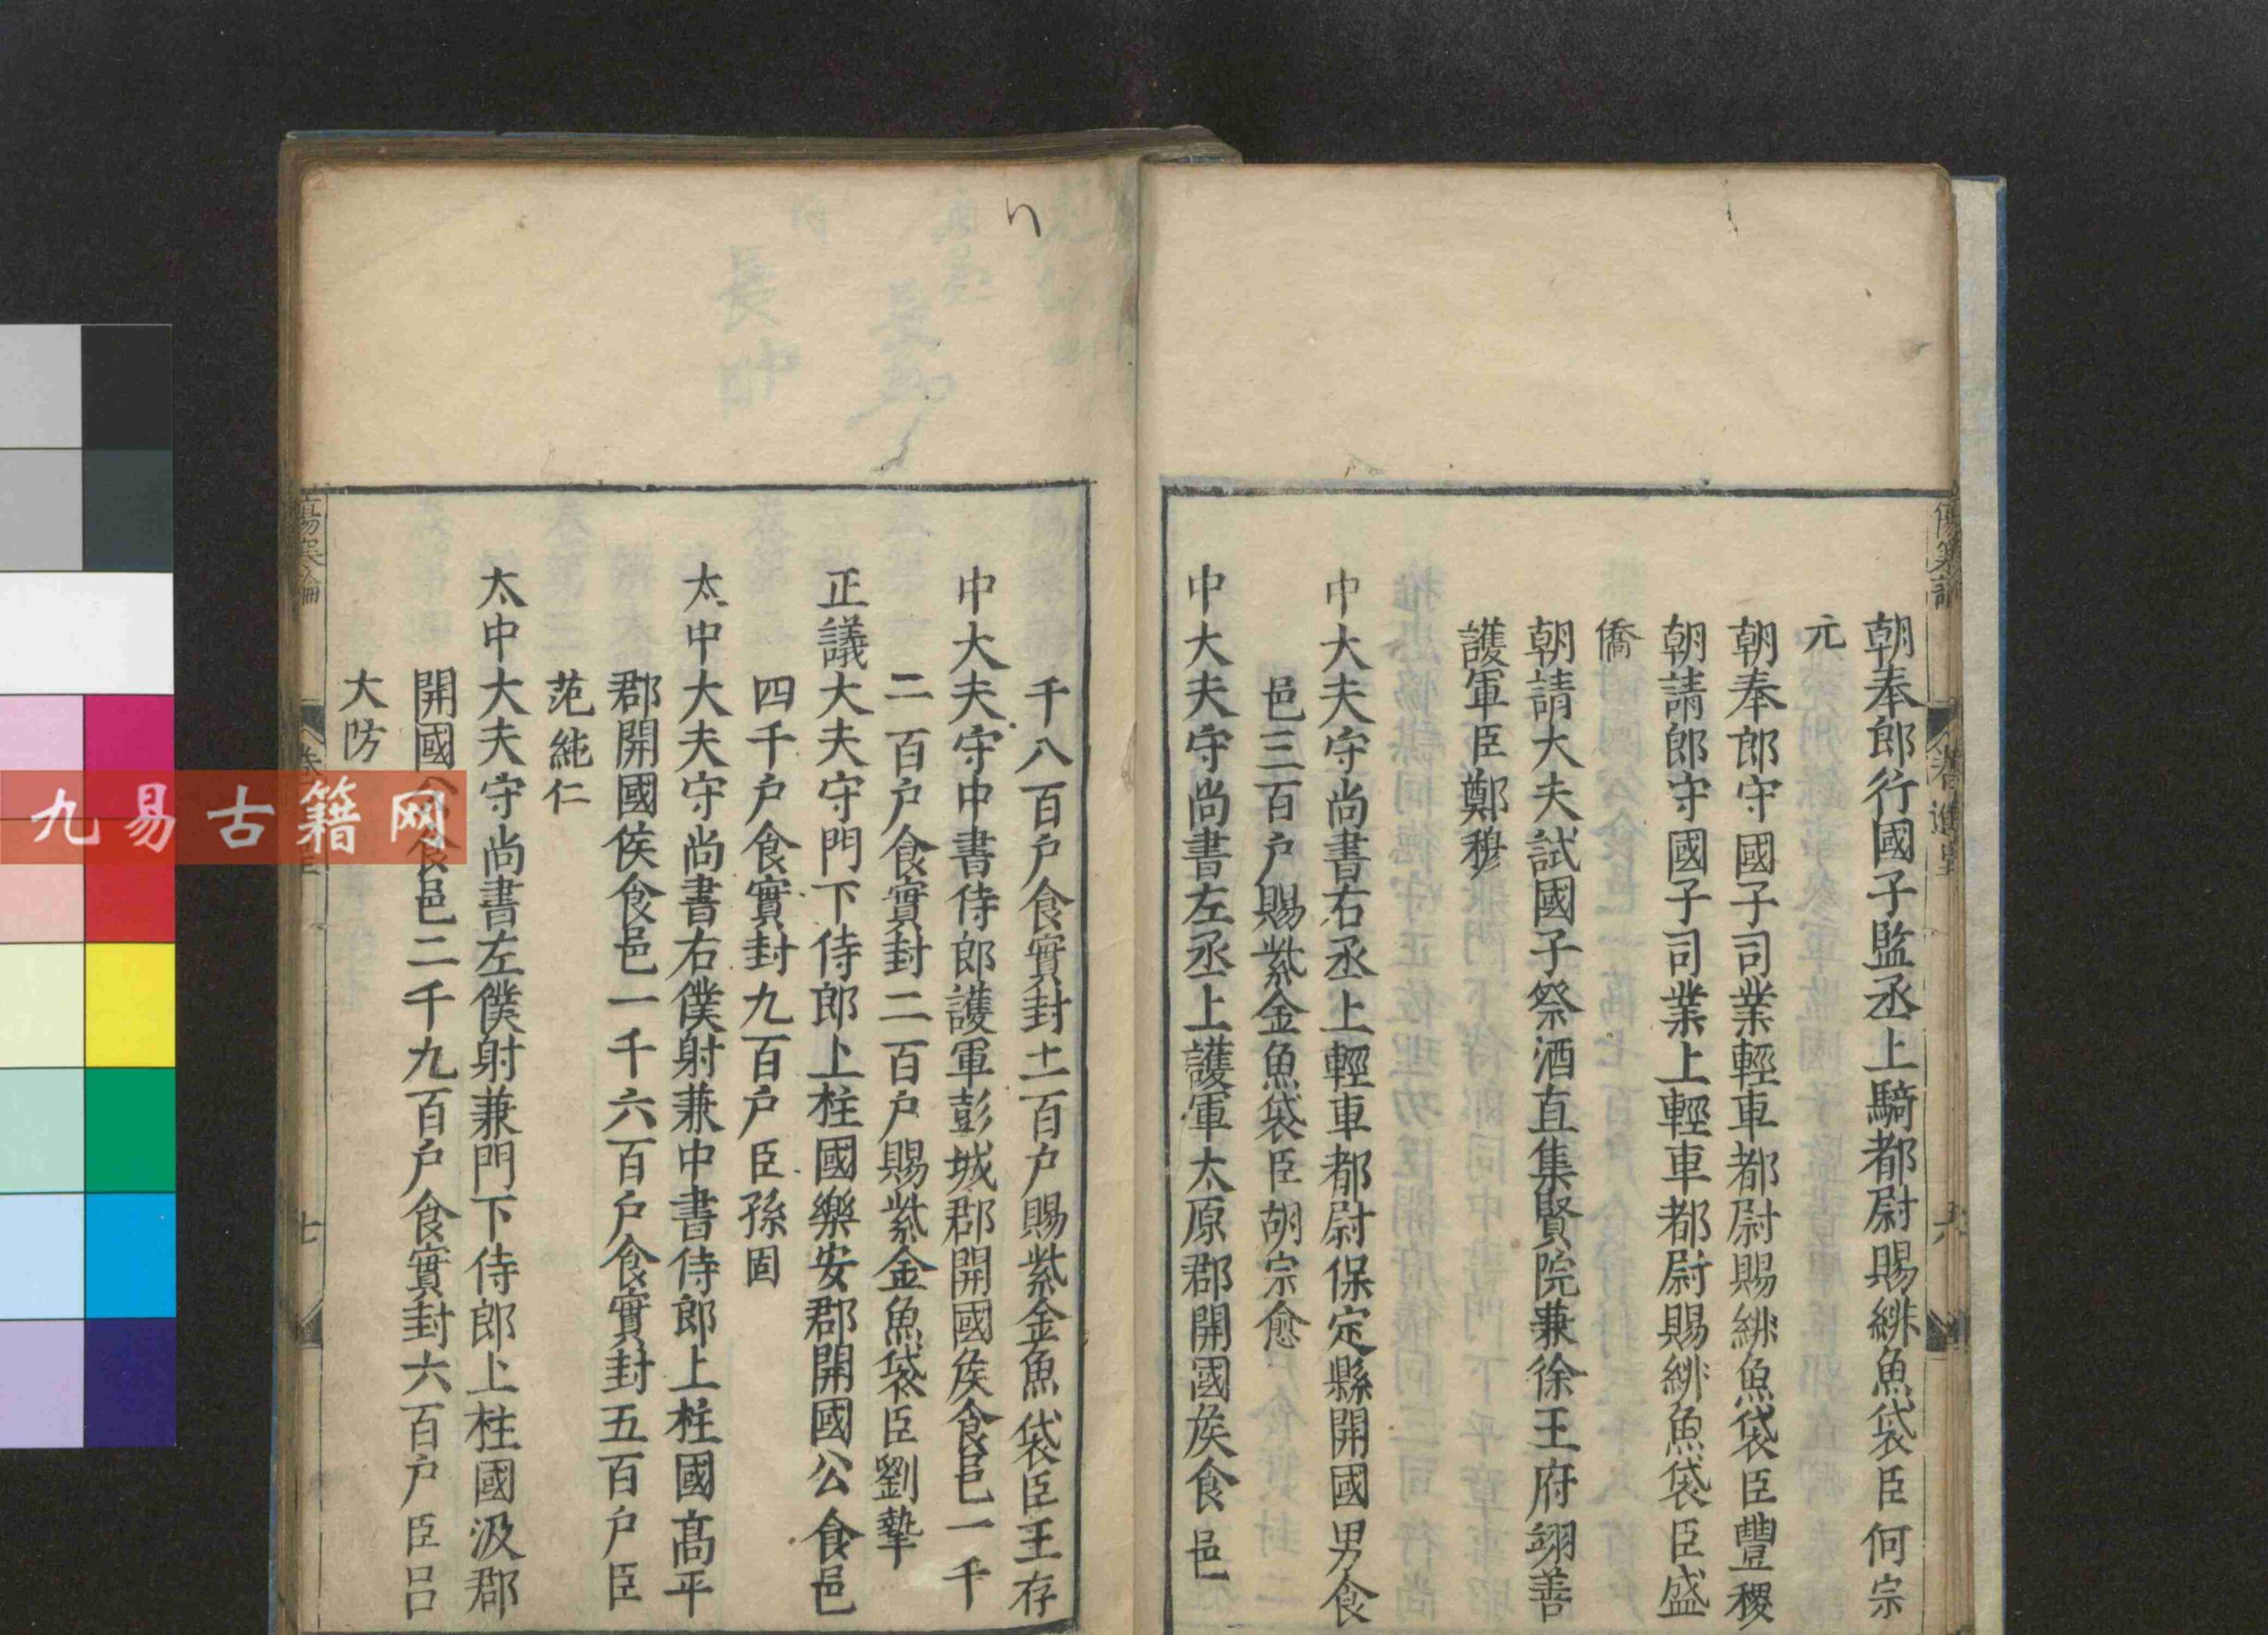 朝奉郎行國子監丞上騎都尉賜緋魚袋臣何宗
元
朝奉郎守國子司業輕車都尉賜緋魚袋臣豐稷
朝請郎守國子司業上輕車都尉賜緋魚袋臣盛
僑
朝請大夫試國子祭酒直集賢院兼徐王府翊善
護軍臣鄭穆
中大夫守尚書右丞上輕車都尉保定縣開國男食
邑三百户賜紫金魚袋臣胡宗愈
中大夫守尚書左丞上護軍太原郡開國侯食邑
千八百户食實封二百户賜紫金魚袋臣王存
中大夫守中書侍郎護軍彭城郡開國侯食邑一千
二百户食實封二百户賜紫金魚袋臣劉摯
正議大夫守門下侍郎上柱國樂安郡開國公食邑
四千户食實封九百户臣孫固
太中大夫守尚書右僕射兼中書侍郎上柱國高平
郡開國侯食邑一千六百户食實封五百户臣
范純仁
太中大夫守尚書左僕射兼門下侍郎上柱國汲郡
開國公食邑二千九百户食實封六百户臣呂
大防
九易古籍网